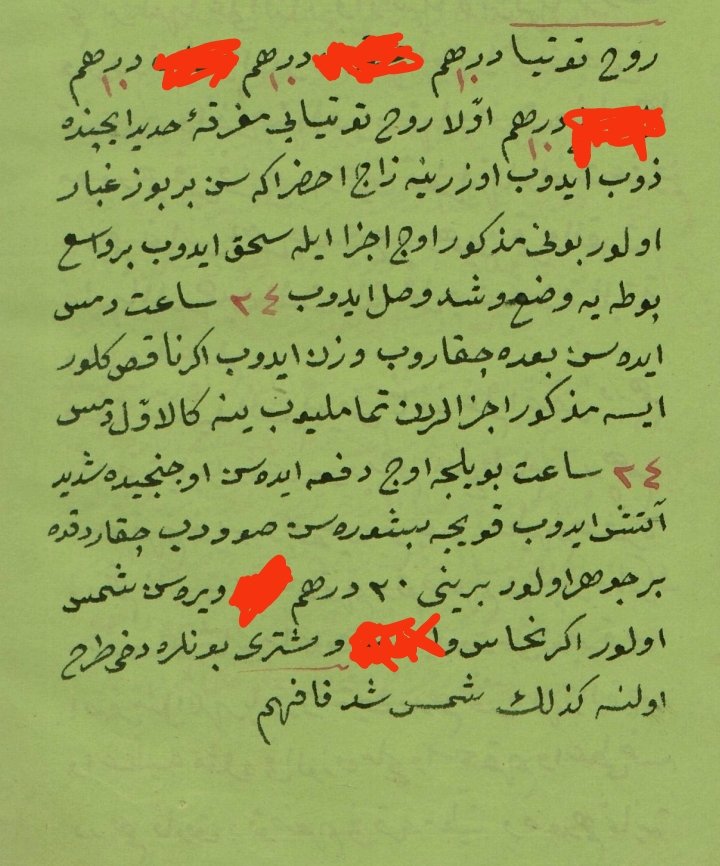 روح توتیا درهم ١٠ درهم ١٠ درهم ١٠
درهم ١٠ اوّلا روح توتیایی مغرفهٔ حدید ایچنده
ذوب ایدوب اوزرینه زاج احضر اکه سن بر بوز غبار
اولور بونی مذکور اوچ اجزا ایله سحق ایدوب بر واسع
بوطه یه وضع و شد وصل ایدوب ٢٤ ساعت دمس
ایده سن بعده چقاروب وزن ایدوب اکر ناقص کلور
ایسه مذکور اجزالردن تماملیوب ینه کالاوّل دمس
٢٤ ساعت بویلجه اوچ دفعه ایده سن اوچنجیده شدید
آتش ایدوب قویجه بشوره سن صوودب چقاردقده
بر جوهر اولور برینی ٣٠ درهم ویره سن شمس
اولور اکر نحاس و مشتری بونلره دخی طرح
اولنه کذلك شمس شد فافهم